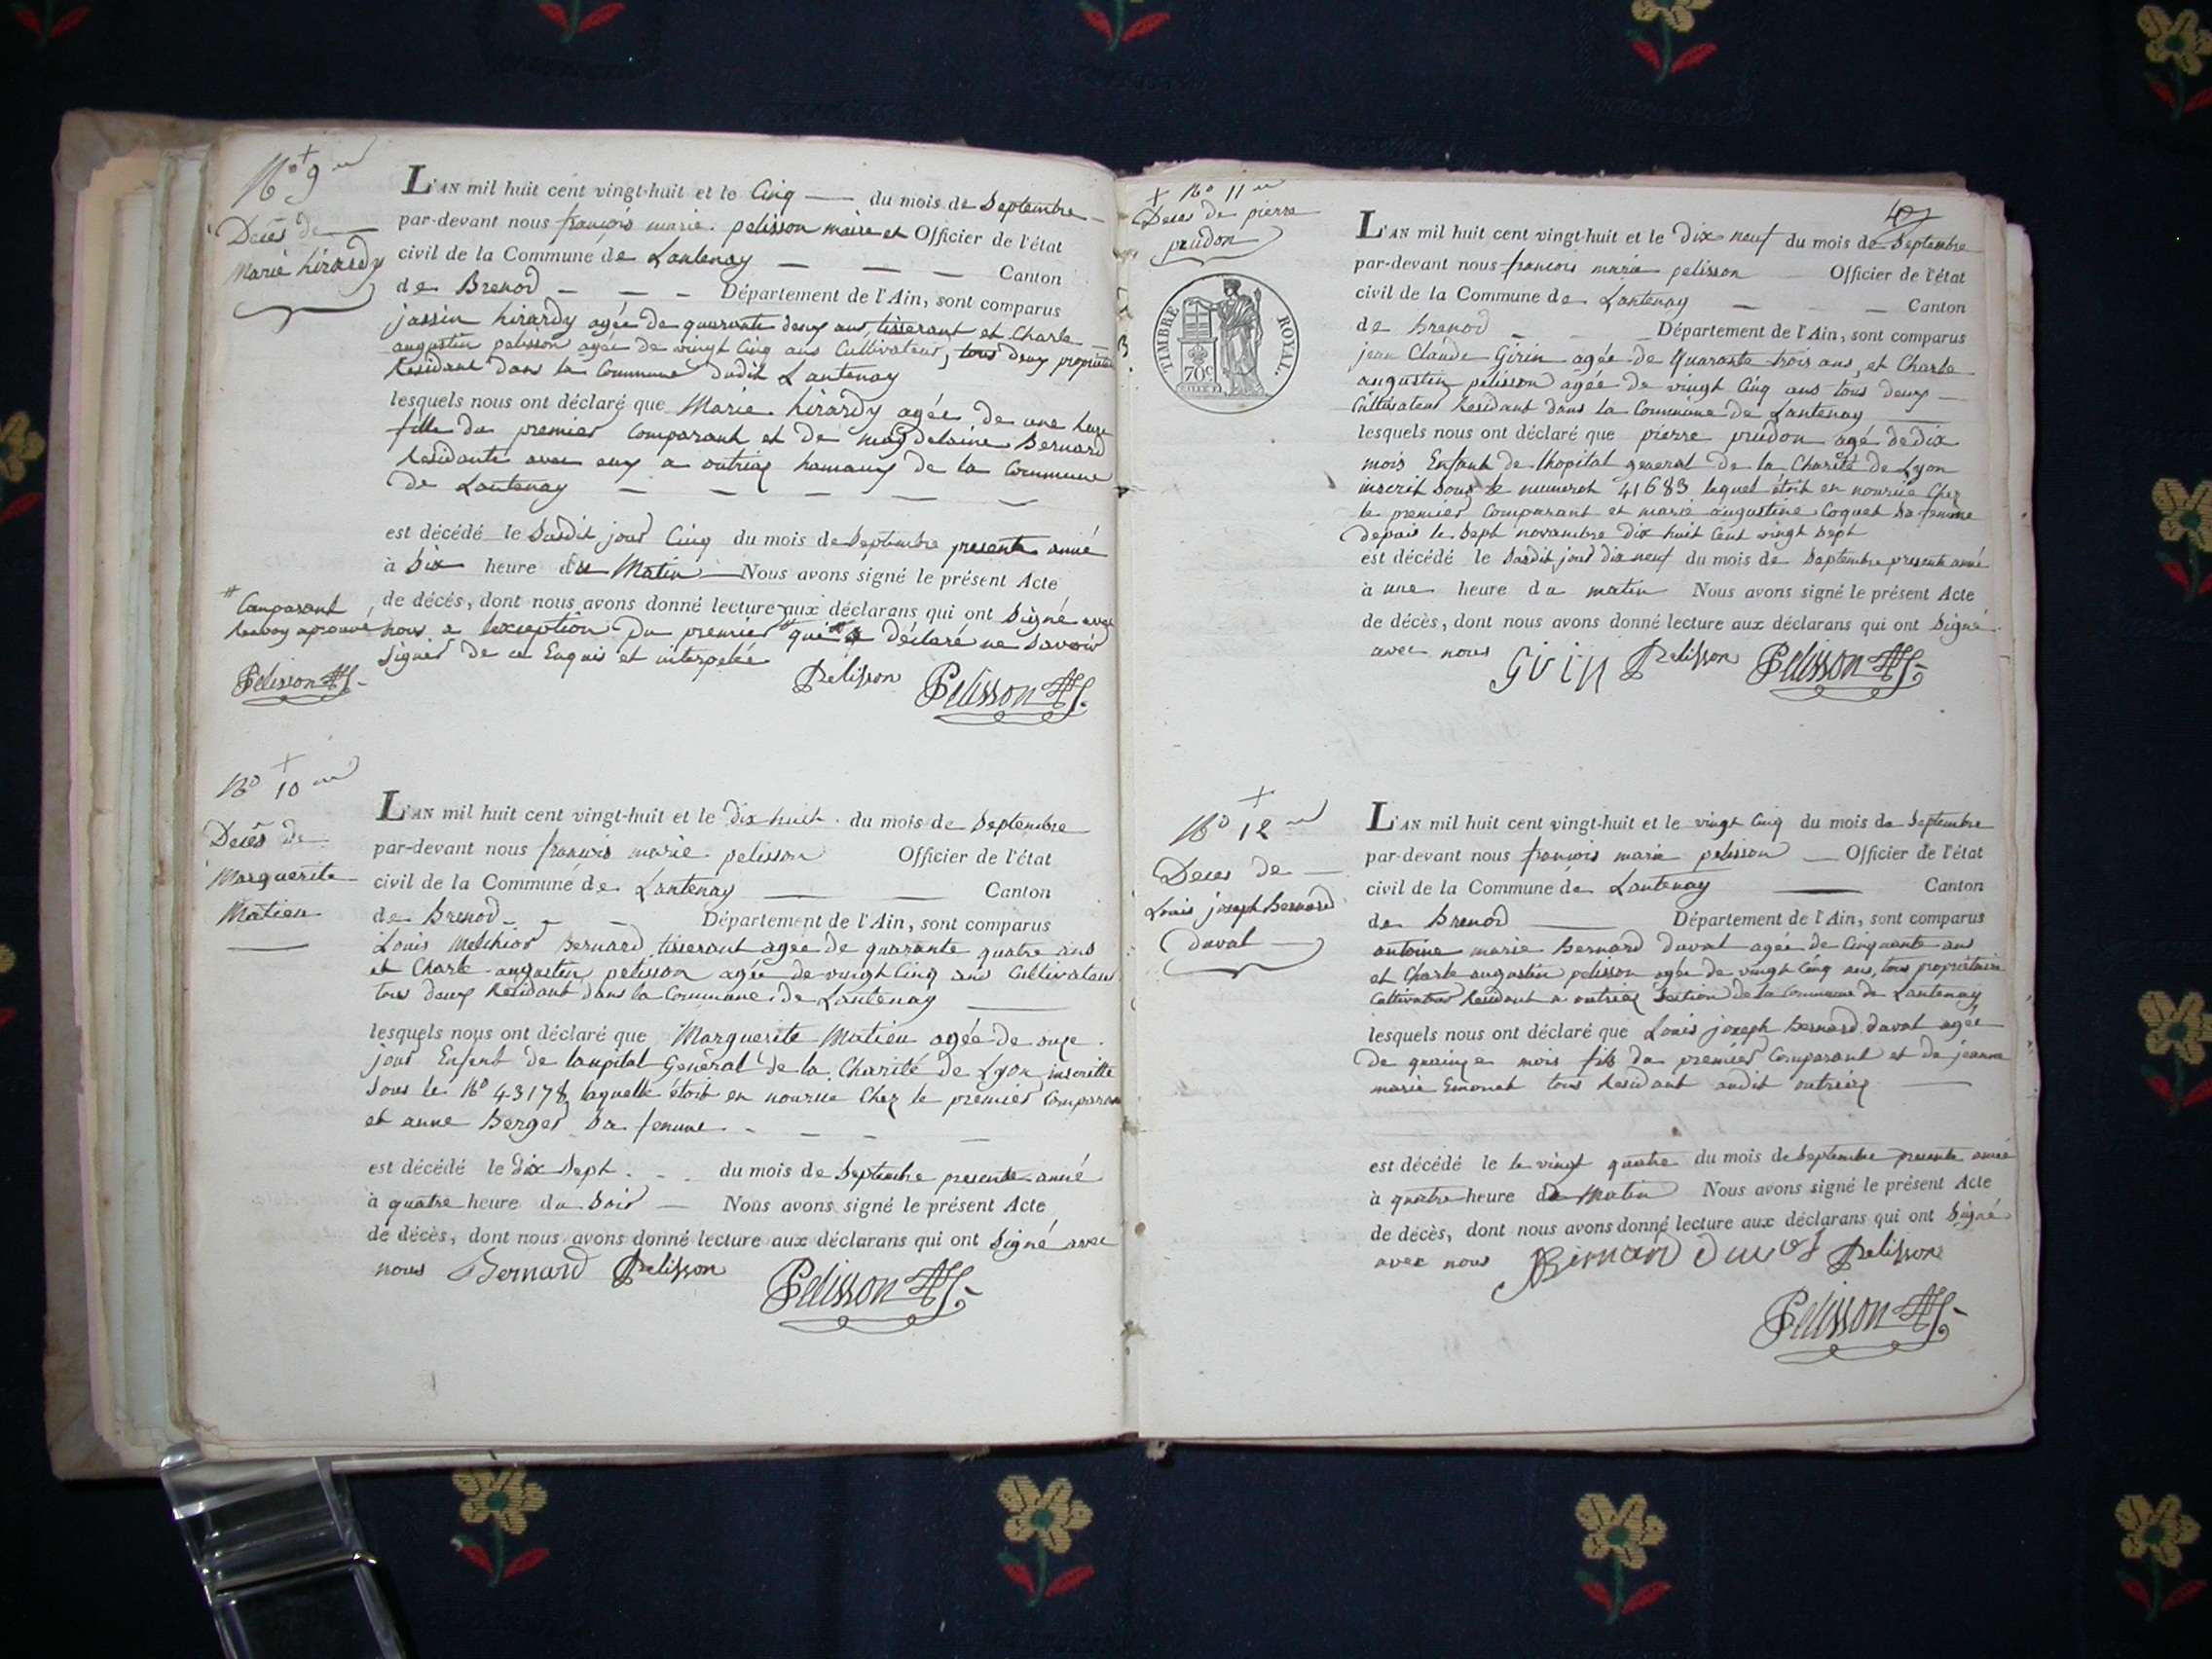 No 9
Decès de
Marie hirardy
L'AN mil huit cent vingt-huit et le Cinq du mois de Septembre
par-devant nous françois marie pelisson maire et Officier de l'état
civil de la Commune de Lantenay Canton
de Brenod Département de l'Ain, sont comparus
hirardy agée de quarante deux ans, tisserant et Charle
augustin pelisson agée de vingt Cinq ans Cultivateur, tous deux
Residant dans la Commune dudit Lantenay
lesquels nous ont déclaré que Marie hirardy agée de une heure
fille du premier Comparant et de magdelaine Bernard
Residante avec eux a outriaz hamaux de la Commune
de Lantenay
est décédé le Susdit jour Cinq du mois de Septembre presente anné
à Six heure du Matin Nous avons signé le présent Acte
de décès, dont nous avons donné lecture aux déclarans qui ont Signé avec
nous a lexception du premier # qui a déclaré ne Savoir
Signer de ce Enquis et interpelée
# Comparant
Renvoy aprouvé
Pelisson
Pelisson Pelisson
No 10
Decès de
Marguerite
Matieu
L'AN mil huit cent vingt-huit et le dix huit du mois de Septembre
par-devant nous françois marie pelisson Officier de l'état
civil de la Commune de Lantenay Canton
de Brenod Département de l'Ain, sont comparus
Louis Melchior Bernard tisserant agée de quarante quatre ans
et Charle augustin pelisson agée de vingt Cinq ans Cultivateur
tous deux Residant dans la Commune de Lantenay
lesquels nous ont déclaré que Marguerite Matieu agée de onze
jour Enfent de laupital Genéral de la Charité de Lyon inscritte
Sous le No 43178 laquelle étoit en nourice Chez le premier Comparant
et anne Berger Sa femme
est décédé le dix Sept du mois de Septembre presente anné
à quatre heure du Soir Nous avons signé le présent Acte
de décès, dont nous avons donné lecture aux déclarans qui ont Signé avec
nous Bernard Pelisson
Pelisson
No 11
Deces de pierre
prudon
TIMBRE ROYAL.
70c
L'AN mil huit cent vingt-huit et le dix neuf du mois de Septembre
par-devant nous francois marie pelisson Officier de l'état
civil de la Commune de Lantenay Canton
de Brenod Département de l'Ain, sont comparus
jean Claude Girin agée de Quarante trois ans, et Charle
augustin pelisson agée de vingt Cinq ans tous deux
Cultivateur Residant dans la Commune de Lantenay
lesquels nous ont déclaré que pierre prudon agé de dix
mois Enfant de lhopital general de la Charité de Lyon
inscrit Sous le numerot 41683 lequel étoit en nourice Chez
le premier Comparant et marie augustine Coquet Sa femme
depuis le Sept novambre dix huit Cent vingt Sept
est décédé le Susdit jour dix neuf du mois de Septembre presente anné
à une heure du matin Nous avons signé le présent Acte
de décès, dont nous avons donné lecture aux déclarans qui ont Signé
avec nous Girin Pelisson Pelisson
No 12
Deces de
Louis joseph Bernard
duval
L'AN mil huit cent vingt-huit et le vingt Cinq du mois de Septembre
par-devant nous françois marie pelisson Officier de l'état
civil de la Commune de Lantenay Canton
de Brenod Département de l'Ain, sont comparus
antoine marie Bernard duval agée de Cinquante ans
et Charle augustin pelisson agée de vingt Cinq ans, tous propriétaire
Cultivateur Residant a outriaz Section de la Commune de Lantenay
lesquels nous ont déclaré que Louis joseph Bernard duval agée
de quainze mois fils du premier Comparant et de jeanne
marie Emonet tous Residant audit outriaz
est décédé le le vingt quatre du mois de Septembre presente anné
à quatre heure de Matin Nous avons signé le présent Acte
de décès, dont nous avons donné lecture aux déclarans qui ont Signé
avec nous Bernard duval Pelisson
Pelisson